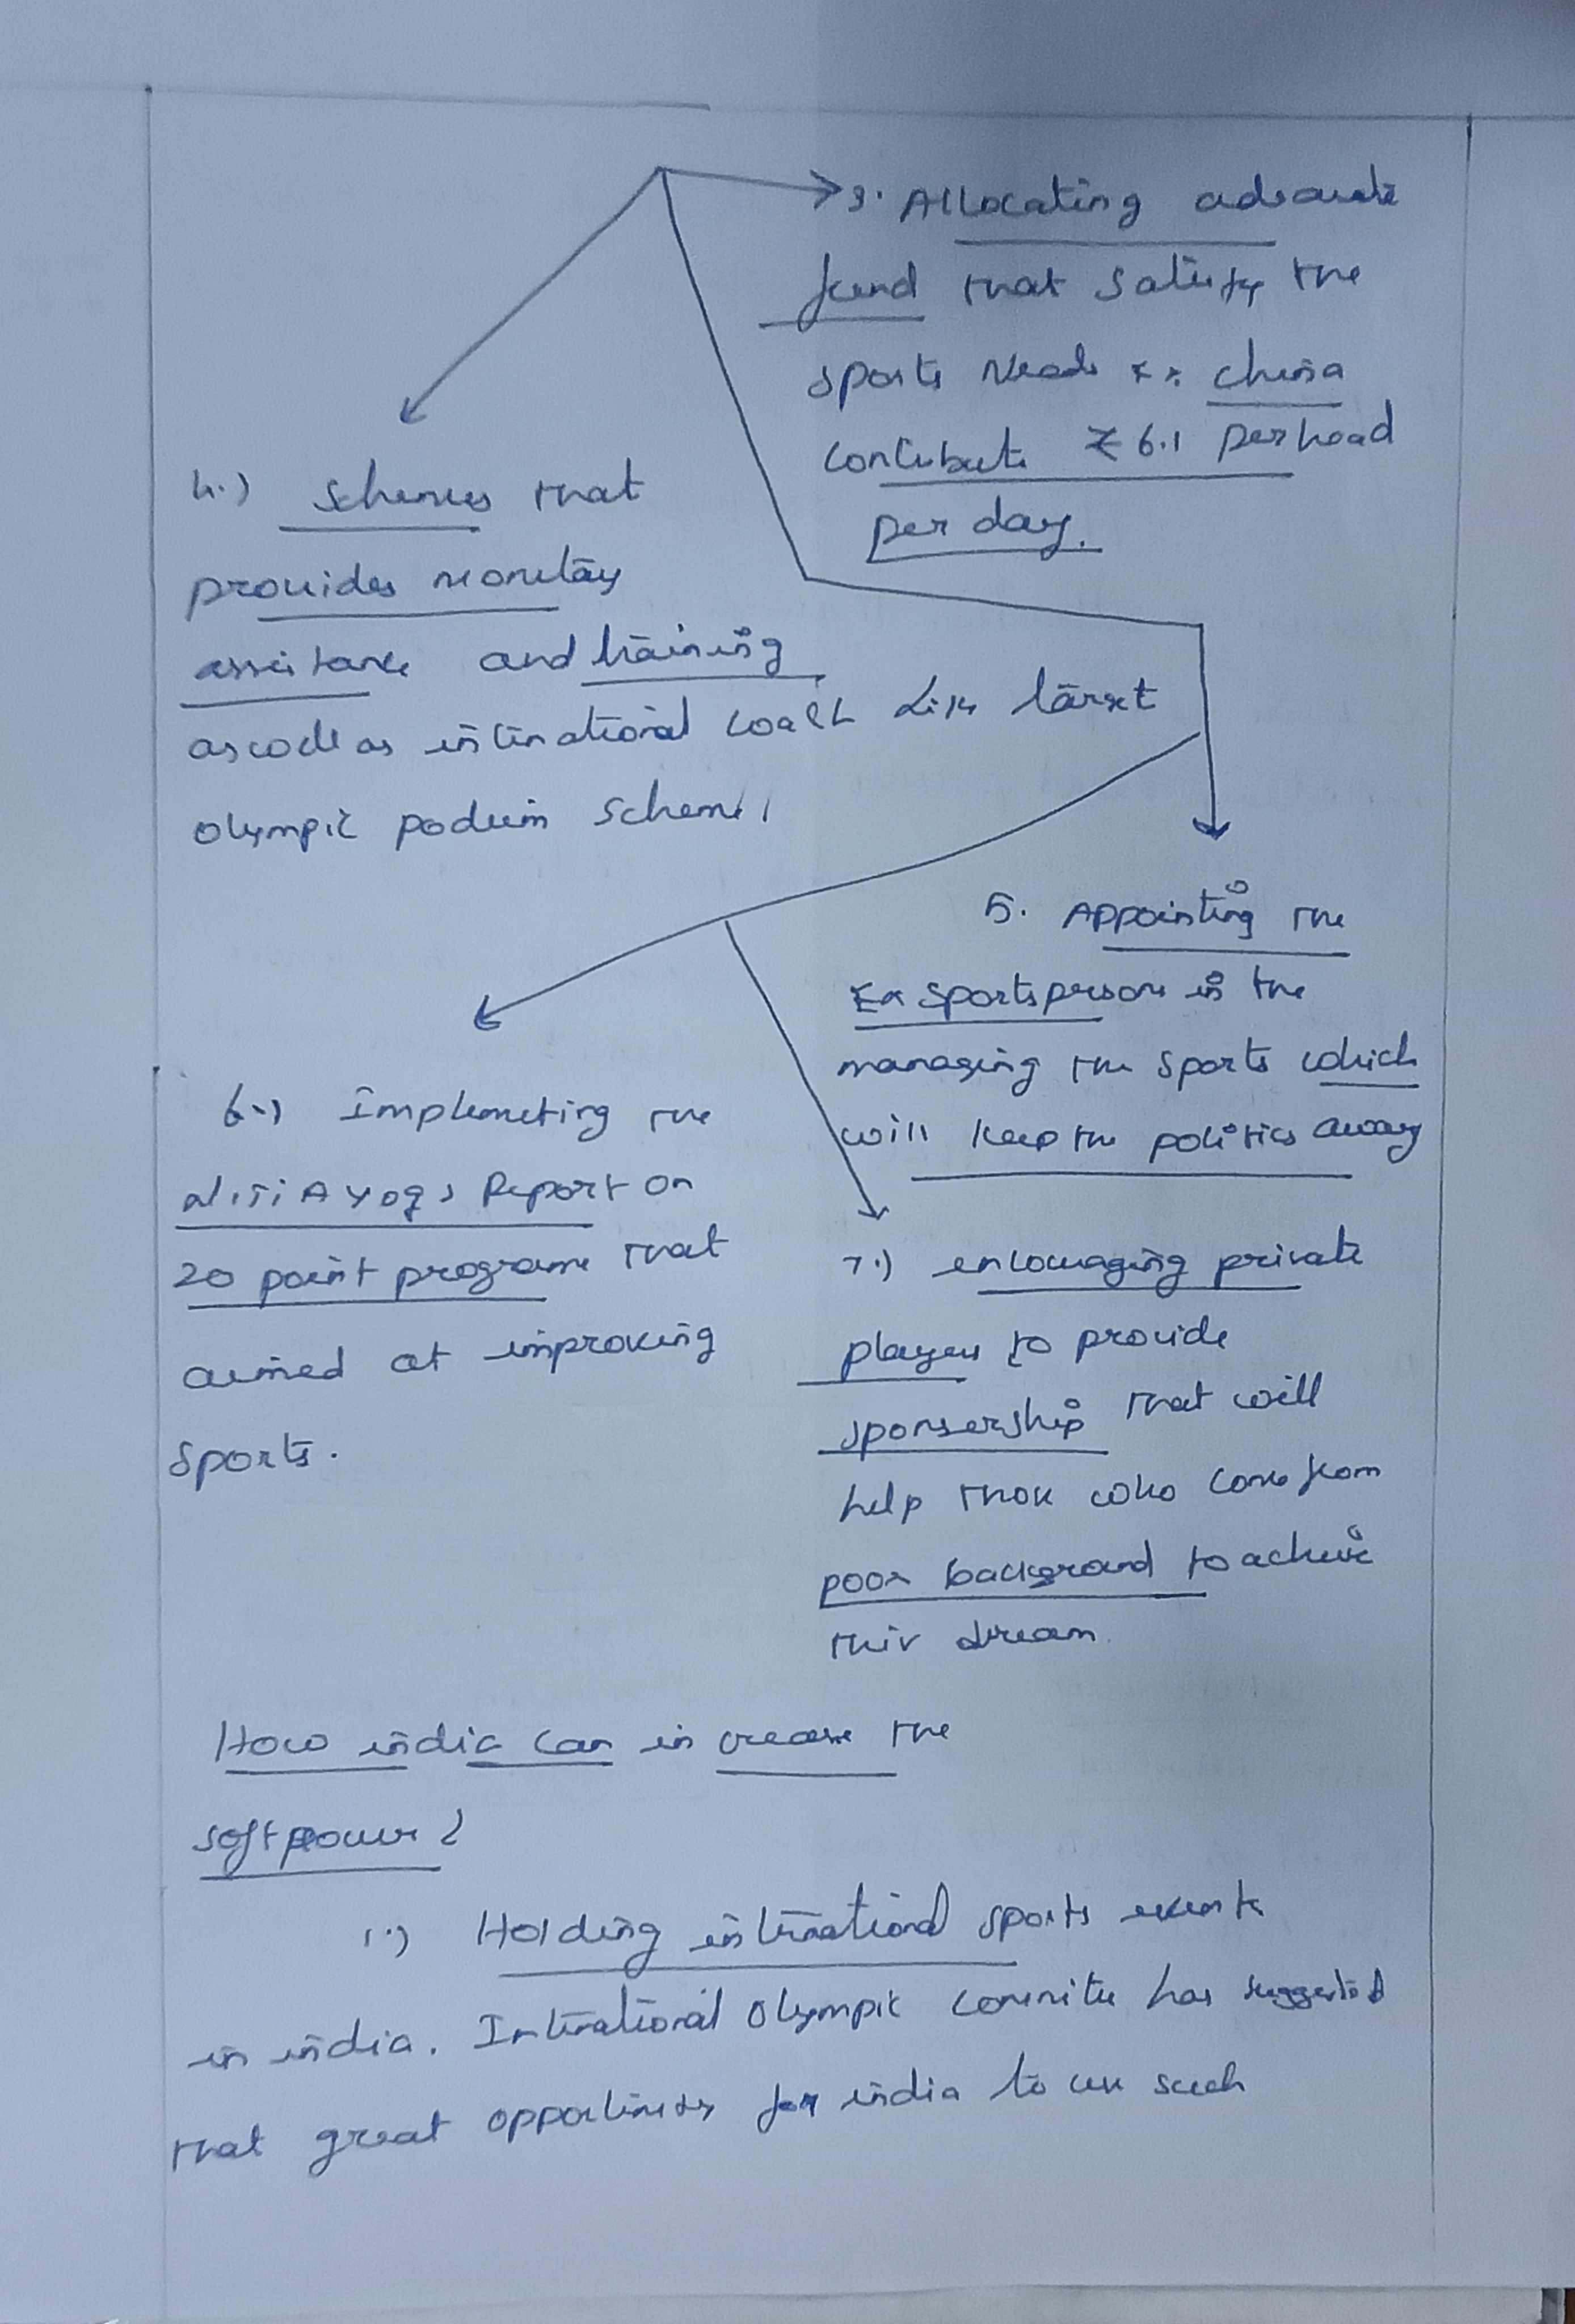 3. Allocating adequate
fund that satisfy the
sports needs Ex: China
contribute ₹ 6.1 per head
per day.
4.) Schemes that
provides monetary
assistance and training
as well as international coach like target
olympic podium scheme.
5. Appointing the
Ex sportsperson in the
managing the sports which
will keep the politics away
6.) Implemeting the
NITI Ayogs Report on
20 point programe that
aimed at improving
sports.
7.) encouraging private
players to provide
sponsership that will
help those who come from
poor background to achieve
their dream.
How india can increase the
soft power?
1.) Holding international sports events
in india. International Olympic committe has suggested
that great opportunity for india to use such